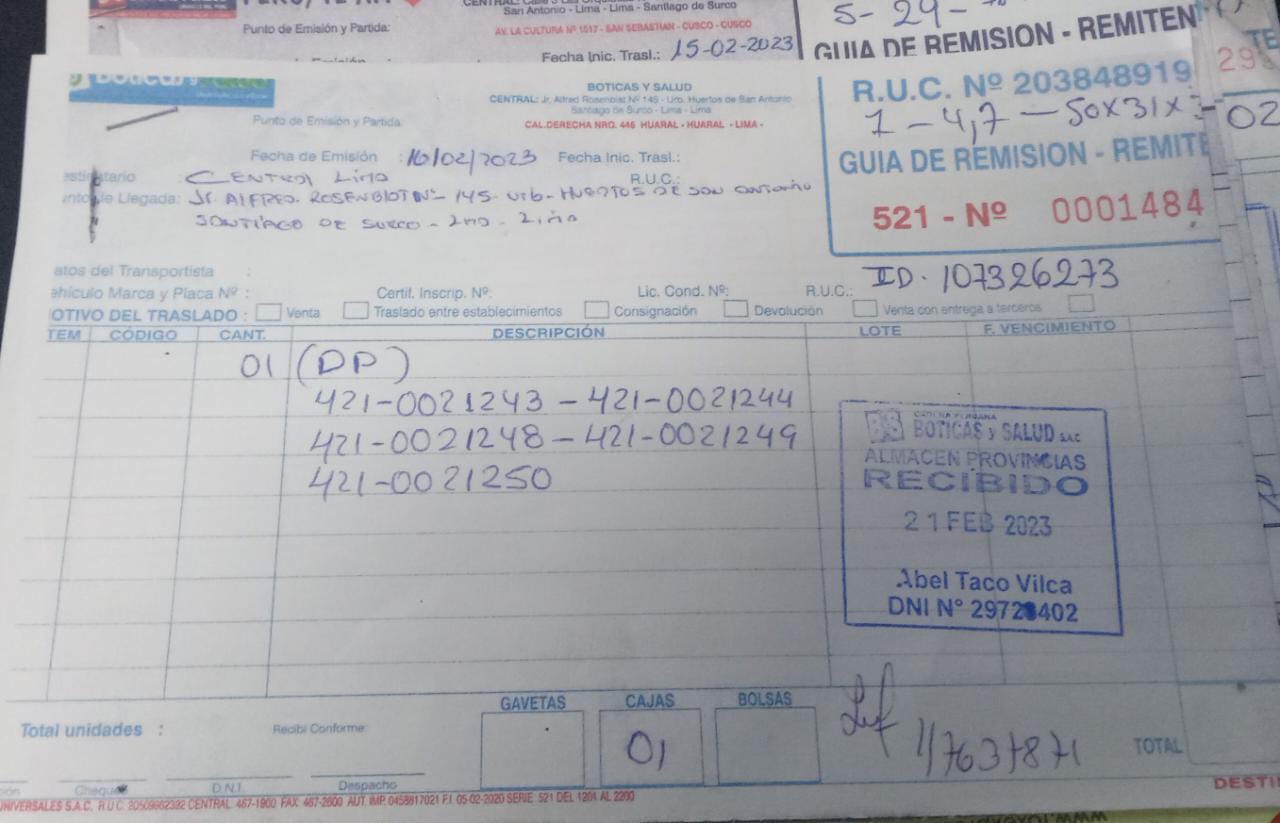 Punto de Emisión y Partida:
San Antonio - Lima - Lima - Santiago de Surco
AV. LA CULTURA Nº 1517 - SAN SEBASTIAN - CUSCO - CUSCO
Fecha Inic. Trasl.: 15-02-2023
5- 29-
GUIA DE REMISION - REMITEN
BOTICAS Y SALUD
CENTRAL: Jr. Alfred Rosenblat Nº 145 - Urb. Huertos de San Antonio
Santiago de Surco - Lima - Lima
CAL.DERECHA NRO. 446 HUARAL - HUARAL - LIMA -
Punto de Emisión y Partida:
R.U.C. Nº 203848919
1 - 4,7 - 50x31x
GUIA DE REMISION - REMITE
521 - Nº 0001484
Fecha de Emisión : 16/02/2023 Fecha Inic. Trasl.:
CENTRAL LIMA R.U.C.:
de Llegada: Jr. ALFRED. ROSENBLOT Nº 145 - Urb. HUERTOS DE SAN ANTONIO
SANTIAGO DE SURCO - LIMA - LIMA
atos del Transportista :
ehículo Marca y Placa Nº : Certif. Inscrip. Nº: Lic. Cond. Nº: R.U.C.: ID. 107326273
OTIVO DEL TRASLADO : Venta Traslado entre establecimientos Consignación Devolución Venta con entrega a terceros
TEM CÓDIGO CANT. DESCRIPCIÓN LOTE F. VENCIMIENTO
01 (DP)
421-0021243 - 421-0021244
421-0021248 - 421-0021249
421-0021250
CADENA PERUANA
BOTICAS y SALUD S.A.C
ALMACEN PROVINCIAS
RECIBIDO
21 FEB 2023
Abel Taco Vilca
DNI N° 29728402
GAVETAS CAJAS BOLSAS
01
Total unidades : Recibi Conforme:
TOTAL
Chequeo D.N.I. Despacho
DESTI
UNIVERSALES S.A.C. R.U.C. 20509662392 CENTRAL 467-1900 FAX 467-2600 AUT. IMP. 0458617021 F.I 05-02-2020 SERIE 521 DEL 1201 AL 2200